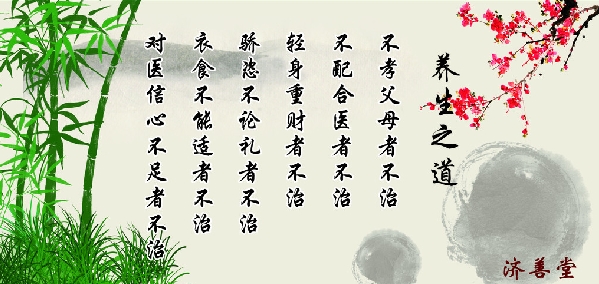 养生之道
不孝父母者不治
不配合医者不治
轻身重财者不治
骄恣不论礼者不治
衣食不能适者不治
对医信心不足者不治
济善堂